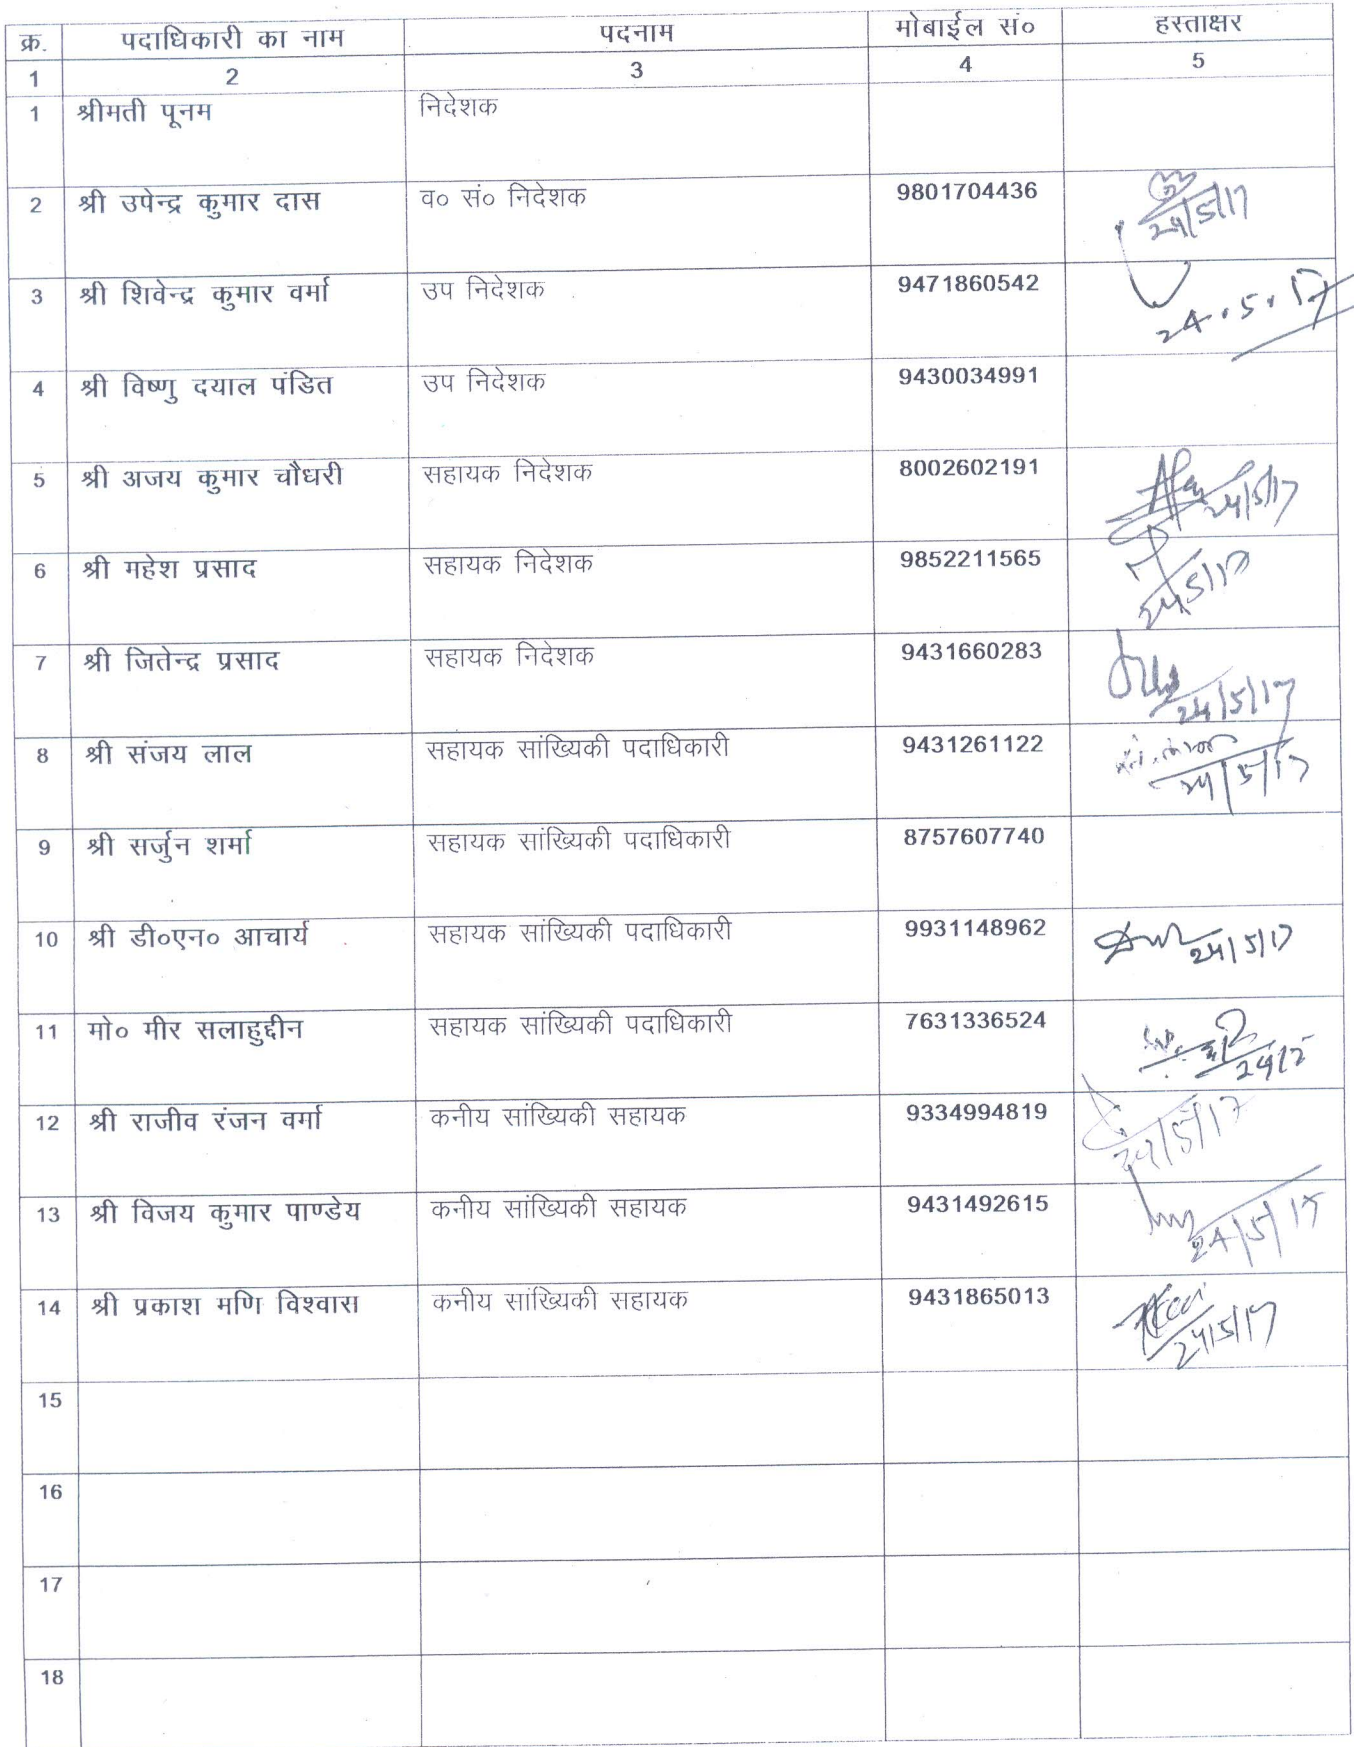 क्र. पदाधिकारी का नाम पदनाम मोबाईल सं० हस्ताक्षर
1 2 3 4 5
1 श्रीमती पूनम निदेशक
2 श्री उपेन्द्र कुमार दास व० सं० निदेशक 9801704436 24/5/17
3 श्री शिवेन्द्र कुमार वर्मा उप निदेशक 9471860542 24.5.17
4 श्री विष्णु दयाल पंडित उप निदेशक 9430034991
5 श्री अजय कुमार चौधरी सहायक निदेशक 8002602191 24/5/17
6 श्री महेश प्रसाद सहायक निदेशक 9852211565 24/5/17
7 श्री जितेन्द्र प्रसाद सहायक निदेशक 9431660283 24/5/17
8 श्री संजय लाल सहायक सांख्यिकी पदाधिकारी 9431261122 24/5/17
9 श्री सर्जुन शर्मा सहायक सांख्यिकी पदाधिकारी 8757607740
10 श्री डी०एन० आचार्य सहायक सांख्यिकी पदाधिकारी 9931148962 24/5/17
11 मो० मीर सलाहुद्दीन सहायक सांख्यिकी पदाधिकारी 7631336524
12 श्री राजीव रंजन वर्मा कनीय सांख्यिकी सहायक 9334994819 24/5/17
13 श्री विजय कुमार पाण्डेय कनीय सांख्यिकी सहायक 9431492615 24/5/17
14 श्री प्रकाश मणि विश्वास कनीय सांख्यिकी सहायक 9431865013 24/5/17
15
16
17
18